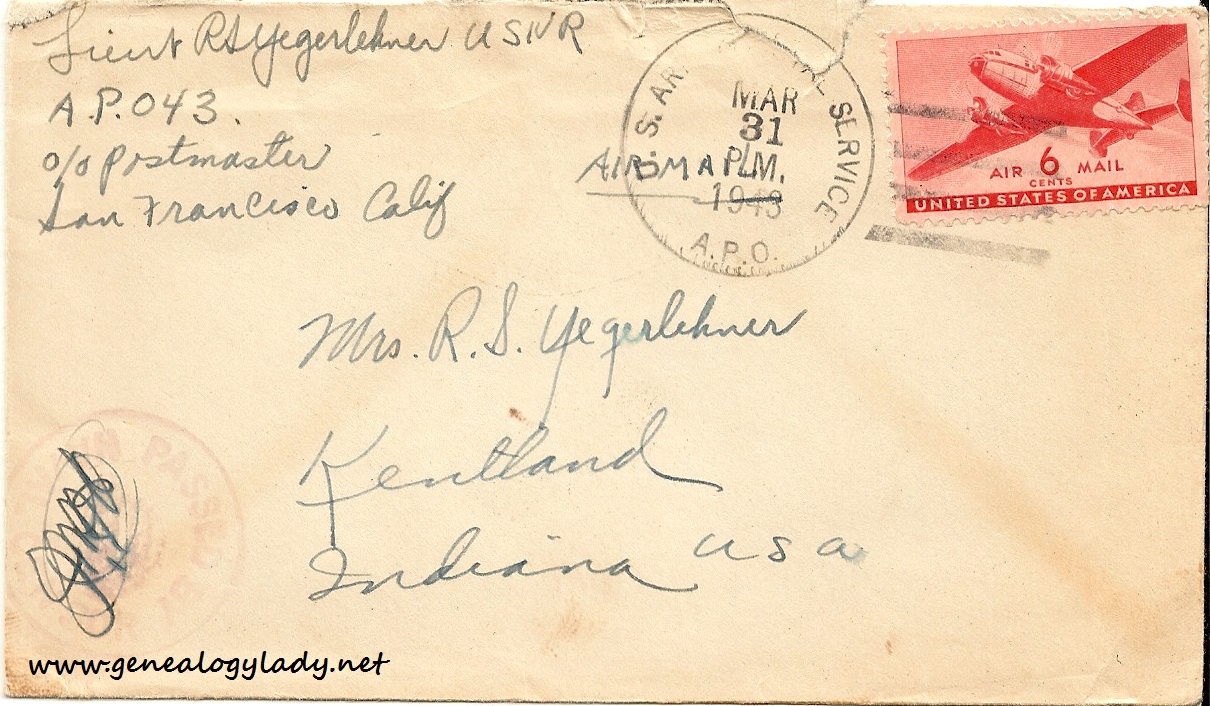 Lieut RS Yegerlehner USNR
A.P.O 43.
c/o postmaster
San Francisco Calif
U.S. AR AL SERVICE
MAR
31
P.M.
1943
A.P.O.
AIR MAIL
AIR 6 MAIL
CENTS
UNITED STATES OF AMERICA
Mrs. R. S. Yegerlehner
Kentland
Indiana USA
PASSED BY
www.genealogylady.net